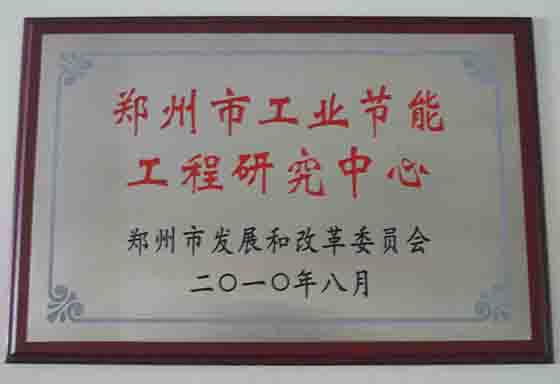 郑州市工业节能
工程研究中心
郑州市发展和改革委员会
二〇一〇年八月